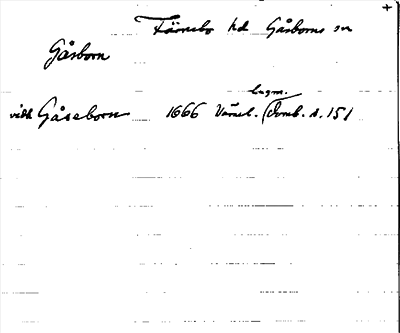 Färnebo hd Gåsborns sn
Gåsborn
vidh Gåseborn 1666 Värml. lagm. Domb. s. 151